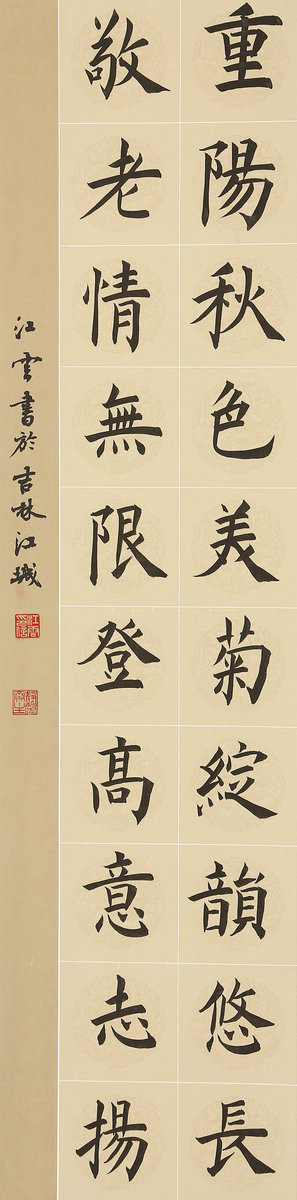 重陽秋色美菊綻韻悠長
敬老情無限登高意志揚
江雲書於吉林江城